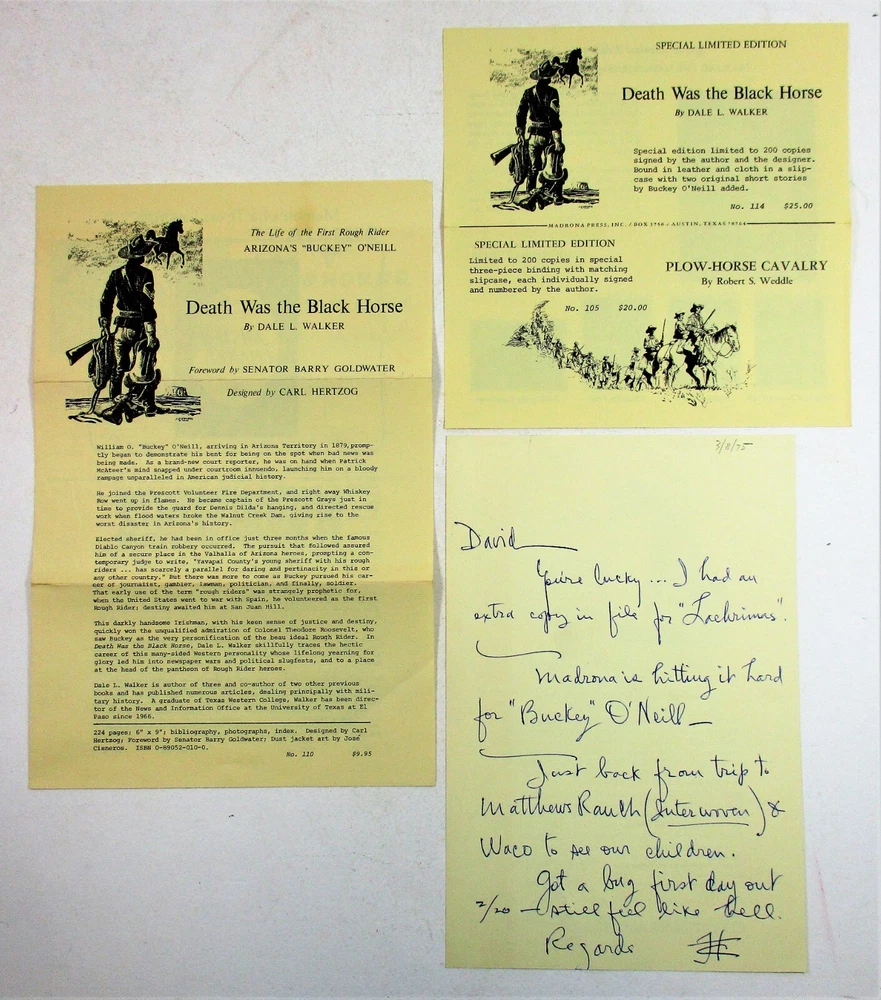 The Life of the First Rough Rider
ARIZONA'S "BUCKEY" O'NEILL
Death Was the Black Horse
By DALE L. WALKER
Foreword by SENATOR BARRY GOLDWATER
Designed by CARL HERTZOG
William O. "Buckey" O'Neill, arriving in Arizona Territory in 1879, promp-
tly began to demonstrate his bent for being on the spot when bad news was
being made. As a brand-new court reporter, he was on hand when Patrick
McAteer's mind snapped under courtroom innuendo, launching him on a bloody
rampage unparalleled in American judicial history.
He joined the Prescott Volunteer Fire Department, and right away Whiskey
Row went up in flames. He became captain of the Prescott Grays just in
time to provide the guard for Dennis Dilda's hanging, and directed rescue
work when flood waters broke the Walnut Creek Dam, giving rise to the
worst disaster in Arizona's history.
Elected sheriff, he had been in office just three months when the famous
Diablo Canyon train robbery occurred. The pursuit that followed assured
him of a secure place in the Valhalla of Arizona heroes, prompting a con-
temporary judge to write, "Yavapai County's young sheriff with his rough
riders ... has scarcely a parallel for daring and pertinacity in this or
any other country." But there was more to come as Buckey pursued his car-
eer of journalist, gambler, lawman, politician, and finally, soldier.
That early use of the term "rough riders" was strangely prophetic for,
when the United States went to war with Spain, he volunteered as the first
Rough Rider; destiny awaited him at San Juan Hill.
This darkly handsome Irishman, with his keen sense of justice and destiny,
quickly won the unqualified admiration of Colonel Theodore Roosevelt, who
saw Buckey as the very personification of the beau ideal Rough Rider. In
Death Was the Black Horse, Dale L. Walker skillfully traces the hectic
career of this many-sided Western personality whose lifelong yearning for
glory led him into newspaper wars and political slugfests, and to a place
at the head of the pantheon of Rough Rider heroes.
Dale L. Walker is author of three and co-author of two other previous
books and has published numerous articles, dealing principally with mili-
tary history. A graduate of Texas Western College, Walker has been direc-
tor of the News and Information Office at the University of Texas at El
Paso since 1966.
224 pages; 6" x 9"; bibliography, photographs, index. Designed by Carl
Hertzog; Foreword by Senator Barry Goldwater; Dust jacket art by José
Cisneros. ISBN 0-89052-010-0.
No. 110 $9.95
SPECIAL LIMITED EDITION
Death Was the Black Horse
By DALE L. WALKER
Special edition limited to 200 copies
signed by the author and the designer.
Bound in leather and cloth in a slip-
case with two original short stories
by Buckey O'Neill added.
No. 114 $25.00
MADRONA PRESS, INC. / BOX 3750 / AUSTIN, TEXAS 78764
SPECIAL LIMITED EDITION
Limited to 200 copies in special
three-piece binding with matching
slipcase, each individually signed
and numbered by the author.
No. 105 $20.00
PLOW-HORSE CAVALRY
By Robert S. Weddle
3/11/75
David
You're lucky ... I had an
extra copy in file for "Lachrimas".
Madrona is hitting it hard
for "Buckey" O'Neill
Just back from trip to
Matthews Ranch (Interwoven) &
Waco to see our children.
Got a bug first day out
2/20 - still feel like hell.
Regards